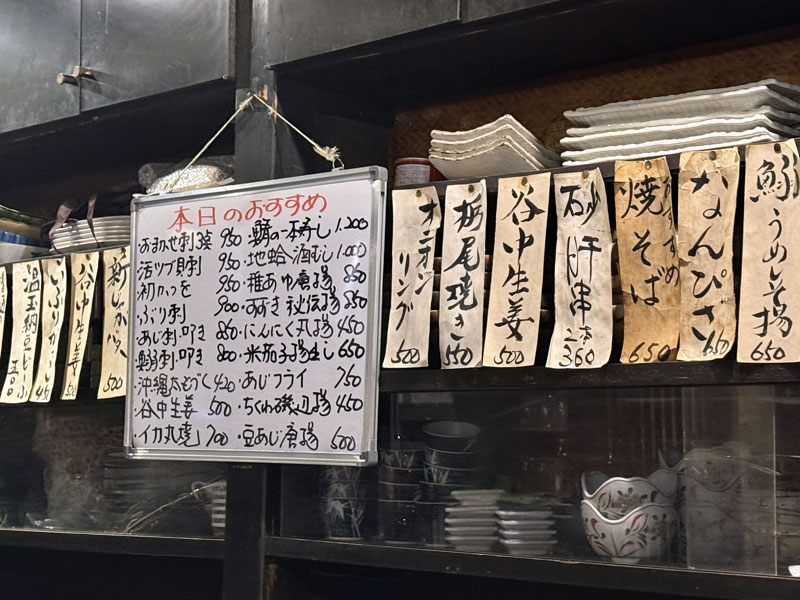 本日のおすすめ
・おまかせ刺3点 950
・活ツブ貝刺 950
・初かつを 950
・ぶり刺 900
・あじ刺・叩き 850
刺・叩き 800
・沖縄太もづく 420
・谷中生姜 500
・イカ丸焼 700
の一本寿し 1.200
・地蛤酒むし 1.000
・稚あゆ唐揚 850
・すずき秘伝揚 850
・にんにく丸揚 450
・米茄子揚出し 650
・あじフライ 750
・ちくわ磯辺揚 450
・豆あじ唐揚 500
温玉納豆
いぶりがっこ 450
谷中生姜 550
新しょうが 500
オニオンリング 500
栃尾焼き 550
谷中生姜 500
砂肝串 2本 360
焼そば 650
なんぴざ 650
鰯うめしそ揚 650